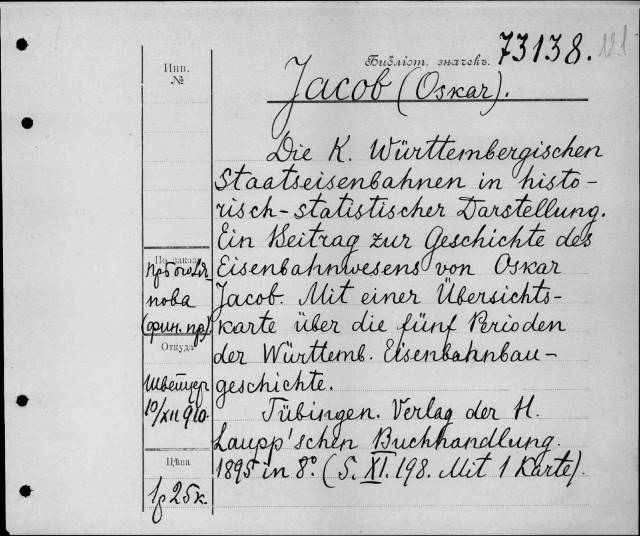 Инв.
№
Библіот. значекъ. 73138. 121
Jacob (Oskar).
Die K. Württembergischen
Staatseisenbahnen in histo-
risch-statistischer Darstellung.
Ein Beitrag zur Geschichte des
Eisenbahnwesens von Oskar
Jacob. Mit einer Übersichts-
karte über die fünf Perioden
der Württemb. Eisenbahnbau-
geschichte.
Tübingen. Verlag der H.
Laupp'schen Buchhandlung.
1895 in 8º. (S. XI. 198. Mit 1 Karte).
По заказу
пова
(фин. пр)
Откуда
Швейцер
10/XII 910
Цѣна
1р 25к.